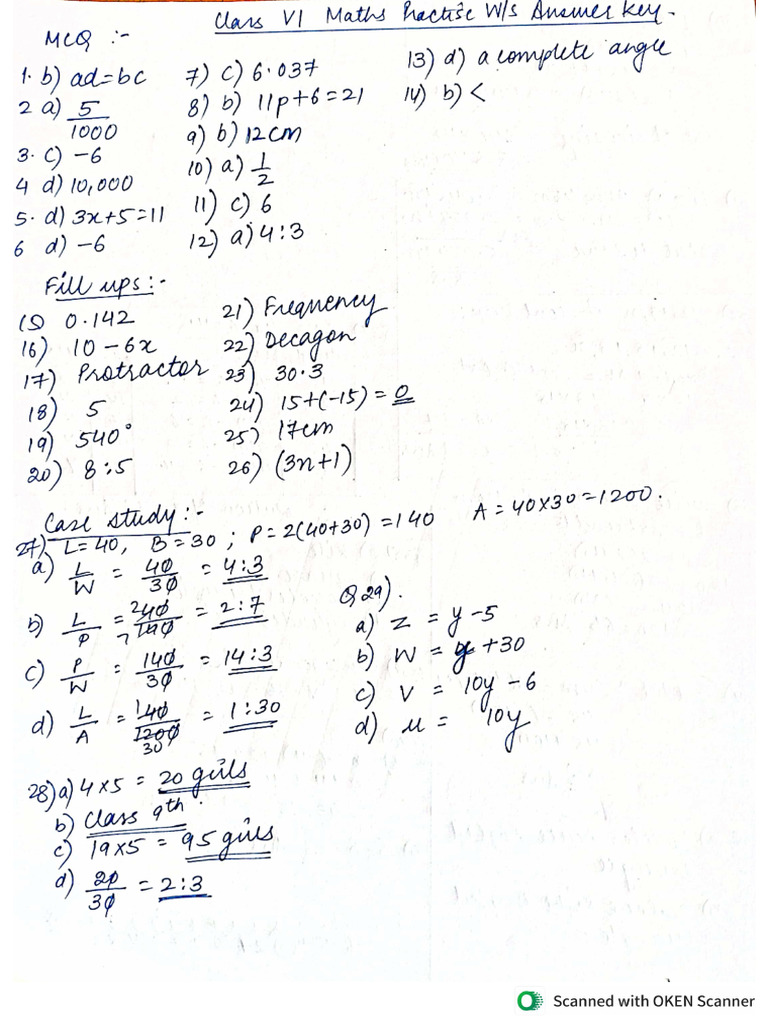 Class VI Maths Practise W/s Answer key.
MCQ :-
1. b) ad=bc
2 a) 5/1000
3. c) -6
4 d) 10,000
5. d) 3x+5=11
6 d) -6
7) c) 6.037
8) b) 11p+6=21
9) b) 12cm
10) a) 1/2
11) c) 6
12) a) 4:3
13) d) a complete angle
14) b) <
Fill ups:-
15) 0.142
16) 10-6x
17) Protractor
18) 5
19) 540°
20) 8:5
21) Frequency
22) Decagon
23) 30.3
24) 15+(-15) = 0
25) 17cm
26) (3n+1)
Case study:-
27) L=40, B=30 ; P=2(40+30)=140 A=40x30=1200.
a) L/W = 40/30 = 4:3
b) L/P = 240/7140 = 2:7
c) P/W = 140/30 = 14:3
d) L/A = 140/1200 30 = 1:30
28) a) 4x5 = 20 girls
b) Class 9th.
c) 19x5 = 95 girls
d) 20/30 = 2:3
Q 29).
a) z = y-5
b) w = y+30
c) v = 10y-6
d) u = 10y
Scanned with OKEN Scanner